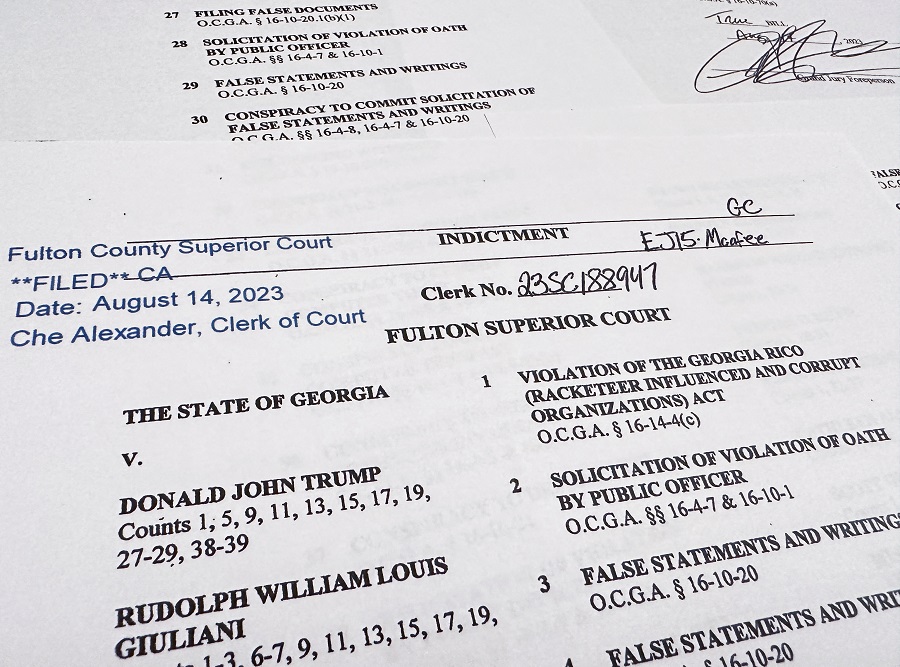 27 FILING FALSE DOCUMENTS
O.C.G.A. § 16-10-20.1(b)(1)
28 SOLICITATION OF VIOLATION OF OATH
BY PUBLIC OFFICER
O.C.G.A. §§ 16-4-7 & 16-10-1
29 FALSE STATEMENTS AND WRITINGS
O.C.G.A. § 16-10-20
30 CONSPIRACY TO COMMIT SOLICITATION OF
FALSE STATEMENTS AND WRITINGS
O.C.G.A. §§ 16-4-8, 16-4-7 & 16-10-20
True BILL
, 2023
Grand Jury Foreperson
GC
INDICTMENT
EJ15. Mcafee
Clerk No. 23SC188947
FULTON SUPERIOR COURT
Fulton County Superior Court
**FILED** CA
Date: August 14, 2023
Che Alexander, Clerk of Court
THE STATE OF GEORGIA
V.
DONALD JOHN TRUMP
Counts 1, 5, 9, 11, 13, 15, 17, 19,
27-29, 38-39
RUDOLPH WILLIAM LOUIS
GIULIANI
1-3, 6-7, 9, 11, 13, 15, 17, 19,
1 VIOLATION OF THE GEORGIA RICO
(RACKETEER INFLUENCED AND CORRUPT
ORGANIZATIONS) ACT
O.C.G.A. § 16-14-4(c)
2 SOLICITATION OF VIOLATION OF OATH
BY PUBLIC OFFICER
O.C.G.A. §§ 16-4-7 & 16-10-1
3 FALSE STATEMENTS AND WRITINGS
O.C.G.A. § 16-10-20
4 FALSE STATEMENTS AND WRI
16-10-20